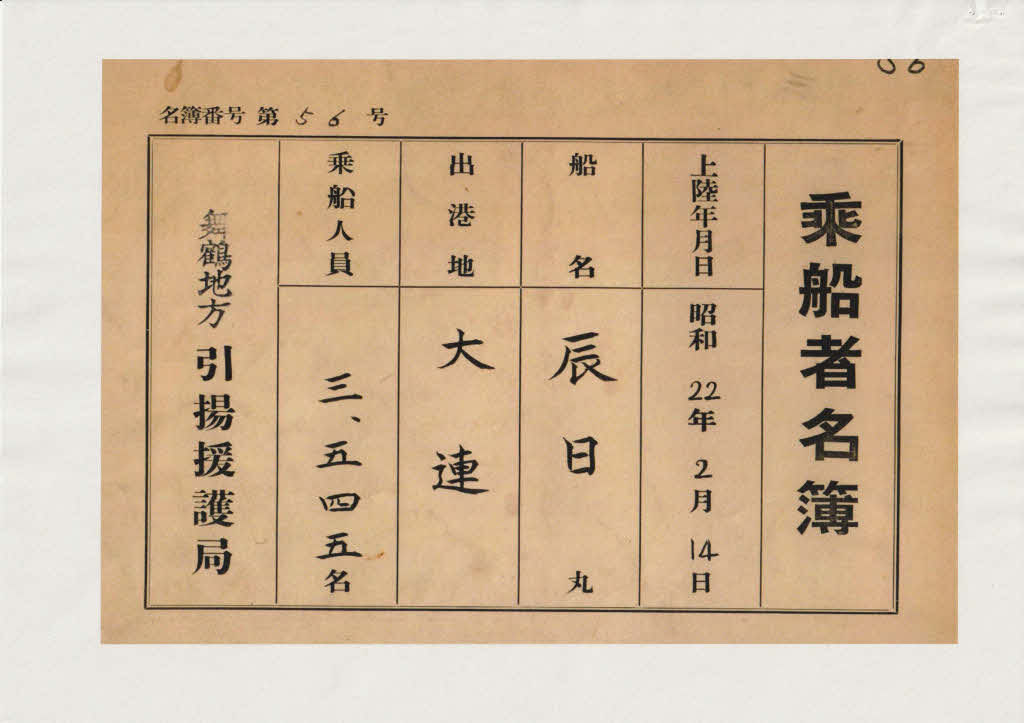 名簿番号 第 56 号
乗船者名簿
上陸年月日 昭和 22年 2月 14日
船名 辰日丸
出港地 大連
乗船人員 三、五四五名
舞鶴地方引揚援護局